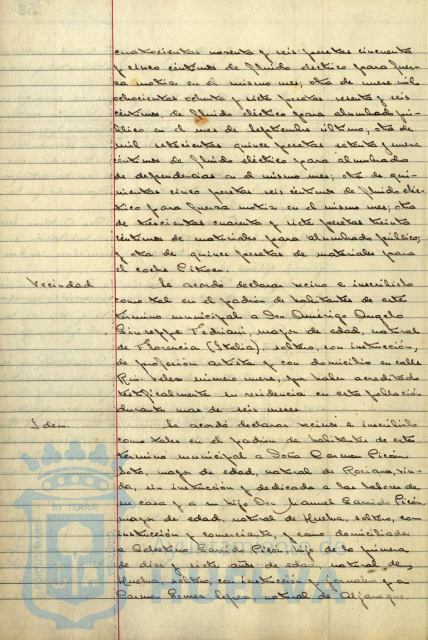 cuatrocientas noventa y seis pesetas cincuenta
y cinco céntimos de fluido eléctrico para fuer-
za motriz en el mismo mes; otra de nueve mil
ochocientas ochenta y siete pesetas sesenta y seis
céntimos, de fluido eléctrico para alumbrado pú-
blico en el mes de Septiembre último, otra de
mil setecientas quince pesetas setenta y nueve
céntimos de fluido eléctrico para alumbrado
de dependencias en el mismo mes; otra de qui-
nientas cinco pesetas seis céntimos de fluido eléc-
trico para fuerza motriz en el mismo mes; otra
de trescientas cuarenta y siete pesetas treinta
céntimos de materiales para alumbrado público;
y otra de quince pesetas de materiales para
el coche Citroen.
Vecindad Se acordó declarar vecino e inscribirlo
como tal en el padrón de habitantes de este
término municipal a Don Américo Angelo
Giuseppe Fediani, mayor de edad, natural
de Florencia (Italia), soltero, con instrucción,
de profesión artista y con domicilio en calle
número nueve, por haber acreditado
testificalmente su residencia en esta población
durante mas de seis meses.
Idem. Se acordó declarar vecinos e inscribirlos
como tales en el padrón de habitantes de este
término municipal a Doña Carmen Picón
Soto, mayor de edad, natural de Rociana, viu-
da, sin instrucción y dedicada a las labores de
su casa y a su hijo Don Manuel Garrido Picón,
mayor de edad, natural de Huelva, soltero, con
instrucción y comerciante y como domiciliados
a Celestino Garrido Picón hijo de la primera
de diez y siete años de edad, natural de
Huelva, soltero, con instrucción y jornalero y a
Carmen Gomez Lopez natural de Aljaraque,